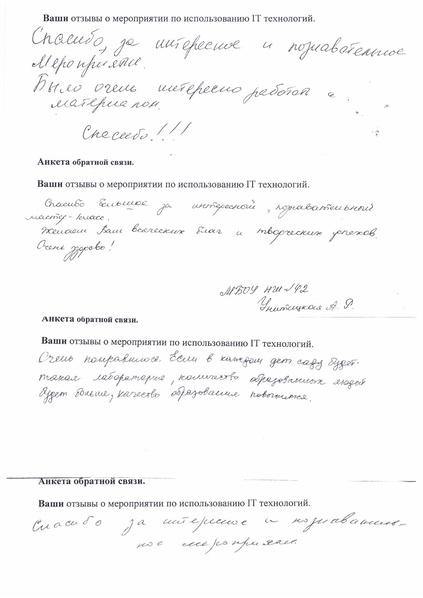 Ваши отзывы о мероприятии по использованию IT технологий.
Спасибо, за интересное и познавательное
мероприятие.
Было очень интересно работать с
материалом.
Спасибо!!!
Анкета обратной связи.
Ваши отзывы о мероприятии по использованию IT технологий.
Спасибо большое за интересной, познавательный
мастер-класс.
Желаем Вам всяческих благ и творческих успехов
Очень здорово!
МБОУ НШ №42
А. Р.
Анкета обратной связи.
Ваши отзывы о мероприятии по использованию IT технологий.
Очень понравилось. Если в каждом дет. саду будет
такая лаборатория, количество образованных людей
будет больше, качество образования повысится.
Анкета обратной связи.
Ваши отзывы о мероприятии по использованию IT технологий.
Спасибо за интересное и познаватель-
ное мероприятие.